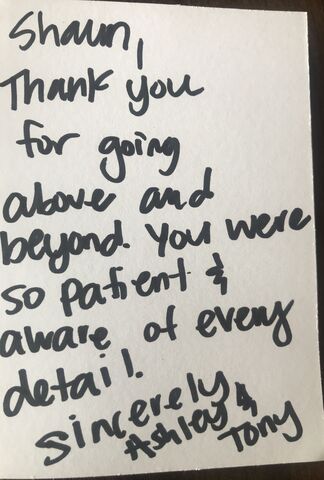 Shaun,
Thank you
for going
above and
beyond. You were
so patient &
aware of every
detail.
Sincerely
Ashley &
Tony